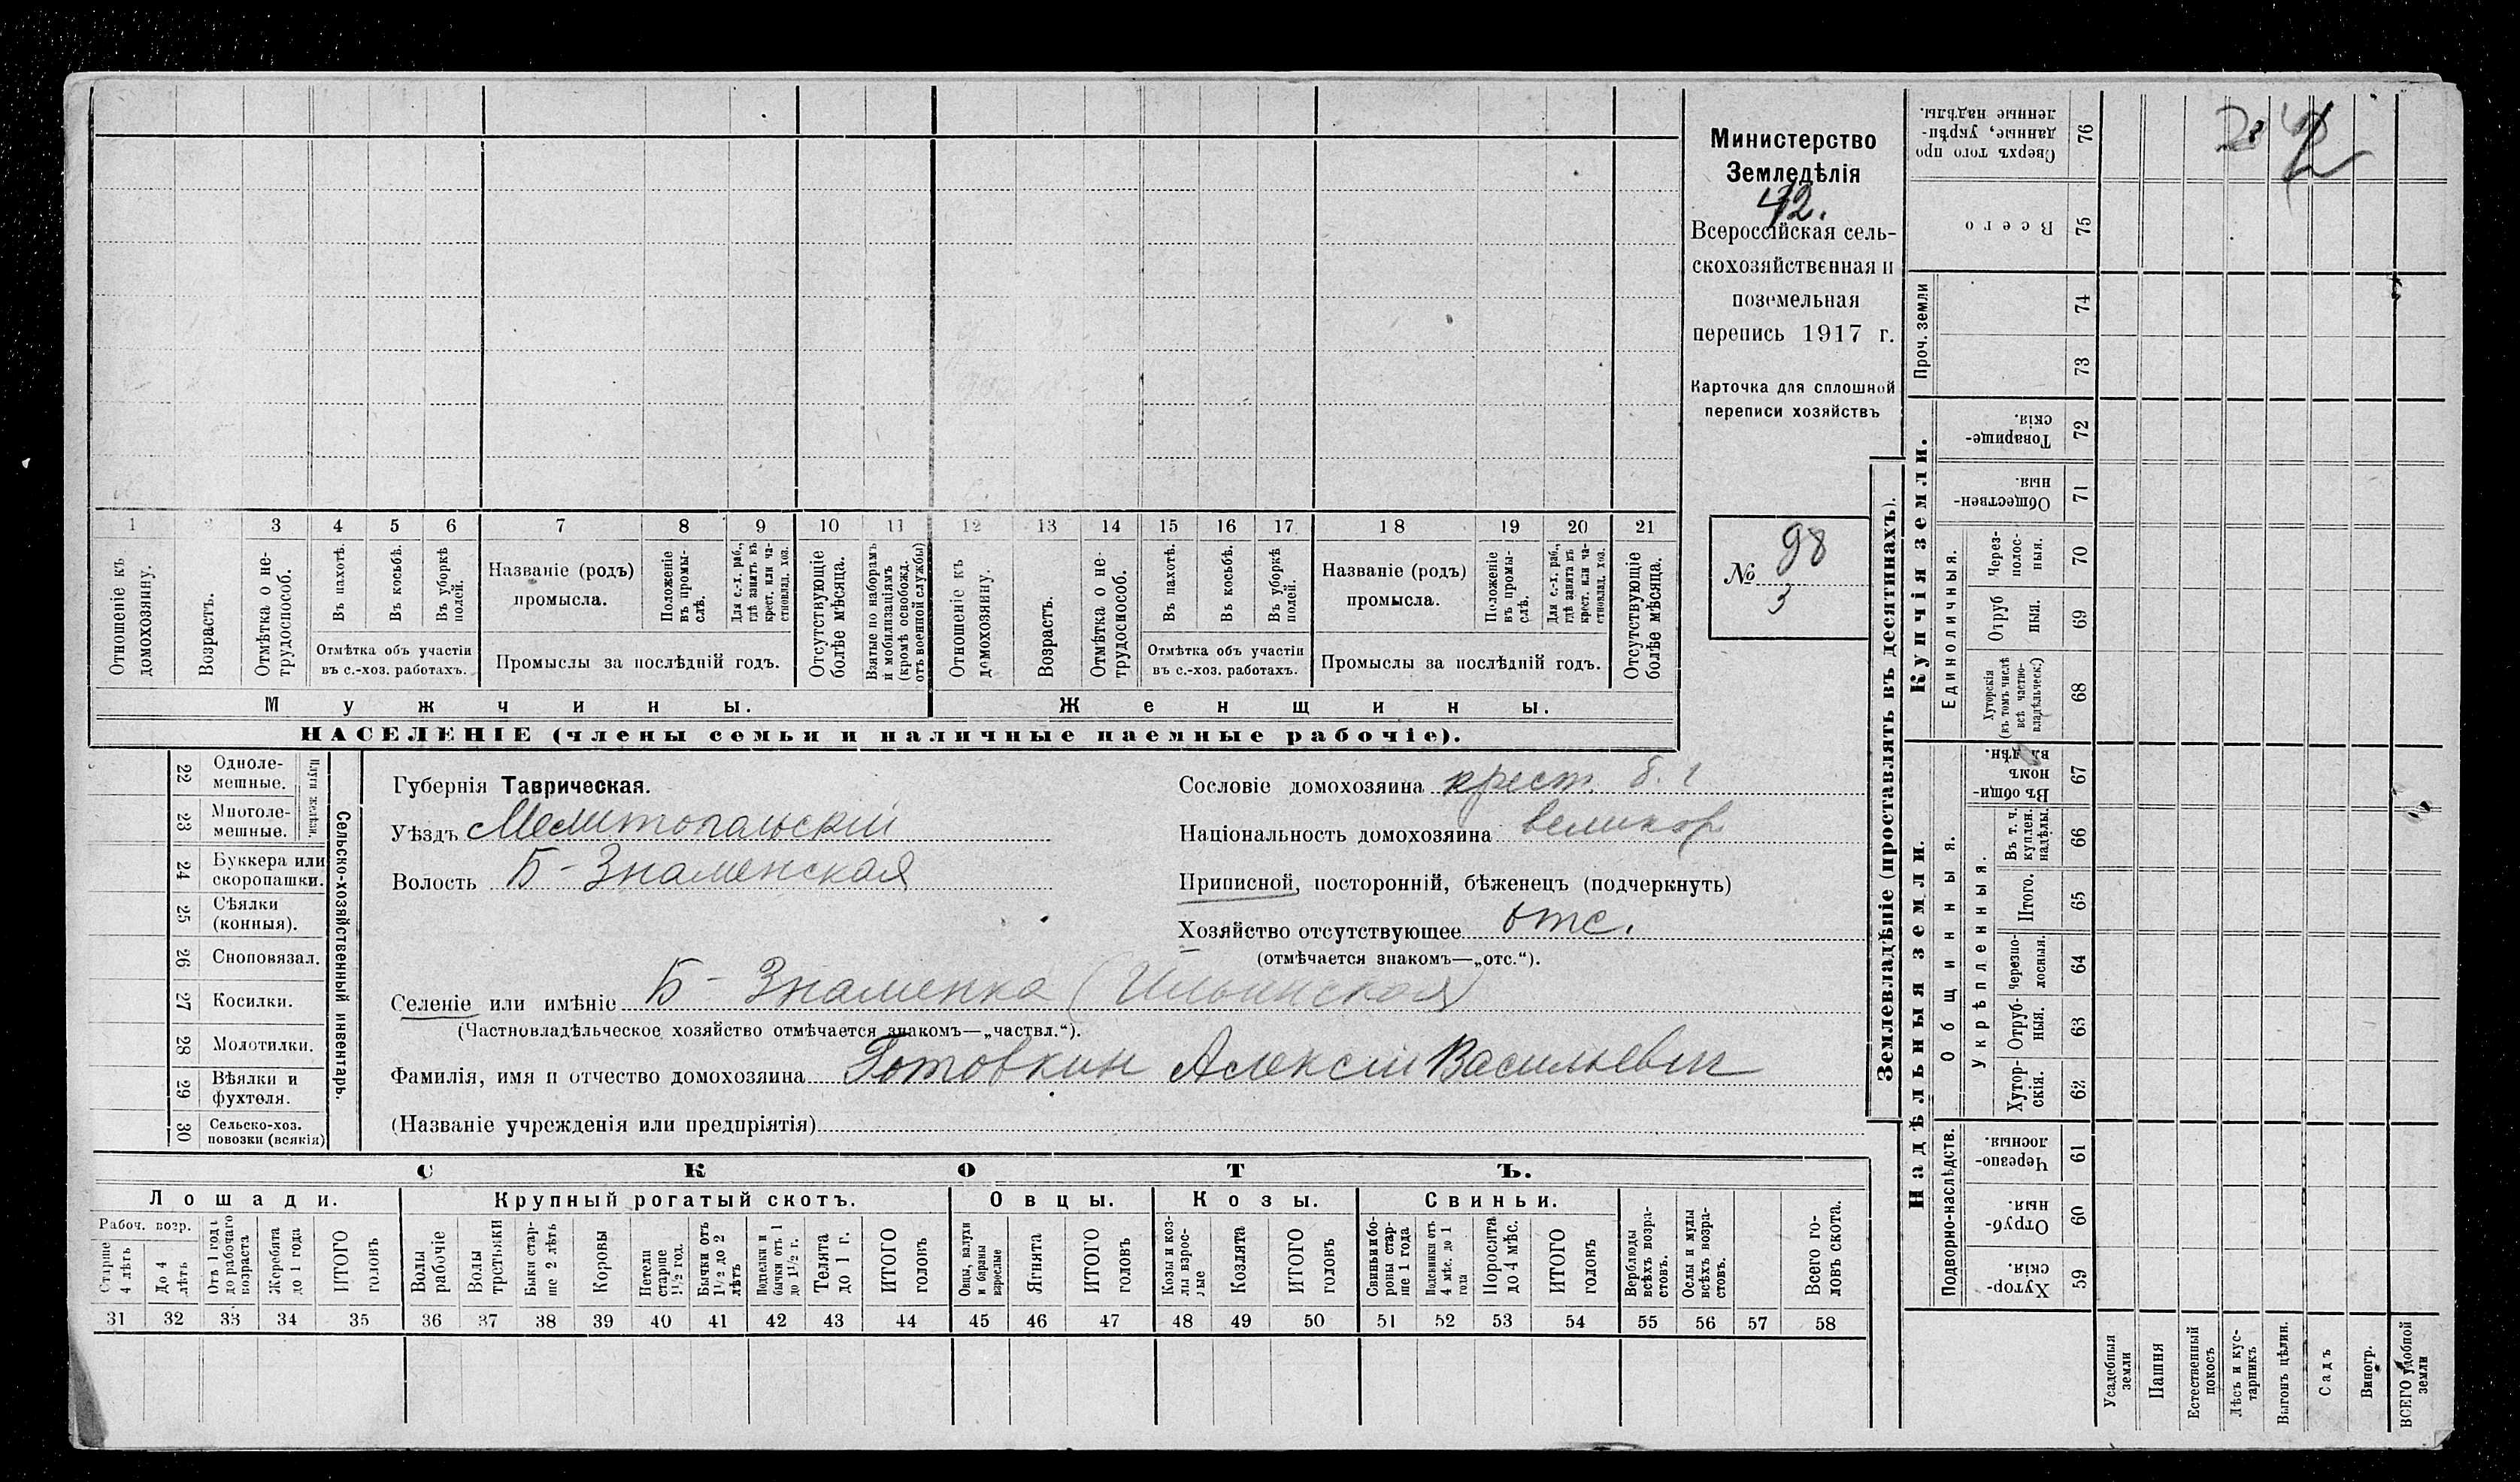 1 2 3 4 5 6 7 8 9 10 11 12 13 14 15 16 17 18 19 20 21
Отношеніе къ домохозяину.
Возрастъ.
Отмѣтка о не-трудоспособ.
Въ пахотѣ.
Въ косьбѣ.
Въ уборкѣ полей.
Отмѣтка объ участіи
въ с.-хоз. работахъ.
Названіе (родъ)
промысла.
Положеніе въ промы-слѣ.
Для с.-х. раб., гдѣ занятъ въ крест. или ча-стновлад. хоз.
Промыслы за послѣдній годъ.
Отсутствующіе болѣе мѣсяца.
Взятые по наборамъ и мобилизаціямъ (кромѣ освобожд. отъ военной службы)
Отношеніе къ домохозяину.
Возрастъ.
Отмѣтка о не-трудоспособ.
Въ пахотѣ.
Въ косьбѣ.
Въ уборкѣ полей.
Отмѣтка объ участіи
въ с.-хоз. работахъ.
Названіе (родъ)
промысла.
Положеніе въ промы-слѣ.
Для с.-х. раб., гдѣ занята въ крест. или ча-стновлад. хоз.
Промыслы за послѣдній годъ.
Отсутствующіе болѣе мѣсяца.
Мужчины.
Женщины.
НАСЕЛЕНІЕ (члены семьи и наличные наемные рабочіе).
Министерство
Земледѣлія
42.
Всероссійская сель-
скохозяйственная и
поземельная
перепись 1917 г.
Карточка для сплошной
переписи хозяйствъ
№ 98
3
22 Одноле-мешные.
23 Многоле-мешные.
Плуги желѣзн.
24 Буккера или скоропашки.
25 Сѣялки (конныя).
26 Сноповязал.
27 Косилки.
28 Молотилки.
29 Вѣялки и фухтеля.
30 Сельско-хоз. повозки (всякія)
Сельско-хозяйственный инвентарь.
Губернія Таврическая.
Уѣздъ Мелитопольскій
Волость Б-Знаменская
Сословіе домохозяина крест.
Національность домохозяина великор
Приписной, посторонній, бѣженецъ (подчеркнуть)
Хозяйство отсутствующее отс.
(отмѣчается знакомъ—„отс.“).
Селеніе или имѣніе Б-Знаменка (Ильинская)
(Частновладѣльческое хозяйство отмѣчается знакомъ—„частвл.“).
Фамилія, имя и отчество домохозяина Готовкин Алексій Васильевич
(Названіе учрежденія или предпріятія)
СКОТЪ.
Лошади.
Крупный рогатый скотъ.
Овцы.
Козы.
Свиньи.
Рабоч. возр.
Старше 4 лѣтъ
До 4 лѣтъ
Отъ 1 года до рабочаго возраста
Жеребята до 1 года
ИТОГО головъ
Волы рабочіе
Волы третьяки
Быки стар-ше 2 лѣтъ
Коровы
Нетели старше 1½ год.
Бычки отъ 1½ до 2 лѣтъ
Подтелки и бычки отъ 1 до 1½ г.
Телята до 1 г.
ИТОГО головъ
Овцы, валухи и бараны взрослые
Ягнята
ИТОГО головъ
Козы и коз-лы взрос-лые
Козлята
ИТОГО головъ
Свиньи и бо-ровы стар-ше 1 года
Подсвинки отъ 4 мѣс. до 1 года
Поросята до 4 мѣс.
ИТОГО головъ
Верблюды всѣхъ возра-стовъ.
Ослы и мулы всѣхъ возра-стовъ.
Всего го-ловъ скота.
31 32 33 34 35 36 37 38 39 40 41 42 43 44 45 46 47 48 49 50 51 52 53 54 55 56 57 58
Землевладѣніе (проставлять въ десятинахъ).
Купчія земли.
Надѣльныя земли.
Сверхъ того про-данные, укрѣп-ленные надѣлы. 76
Всего 75
Проч. земли
74
73
Товарище-скія. 72
Обществен-ныя. 71
Единоличныя.
Через-полос-ныя. 70
Отруб-ныя. 69
Хуторскія (въ томъ числѣ всѣ частно-владѣльческ.) 68
Общинныя.
Въ общи-номъ владѣн. 67
Укрѣпленныя.
Въ т. ч. куплен. надѣлы. 66
Итого. 65
Черезпо-лосныя. 64
Отруб-ныя. 63
Хутор-скія. 62
Подворно-наслѣдств.
Черезпо-лосныя. 61
Отруб-ныя. 60
Хутор-скія. 59
Усадебныя земли
Пашня
Естественный покосъ
Лѣсъ и кус-тарникъ
Выгонъ цѣлин.
Садъ
Виногр.
ВСЕГО удобной земли